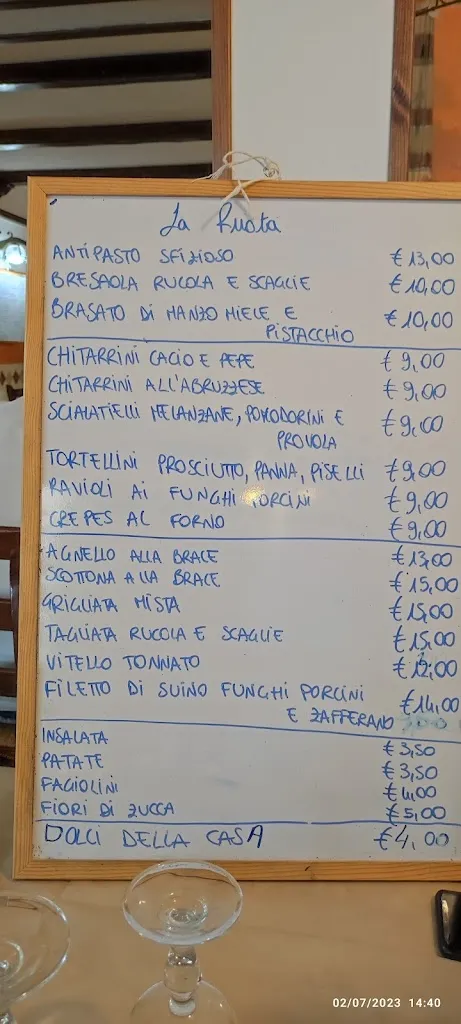 La Ruota
ANTIPASTO SFIZIOSO €13,00
BRESAOLA RUCOLA E SCAGLIE €10,00
BRASATO DI MANZO MIELE E €10,00
PISTACCHIO
CHITARRINI CACIO E PEPE €9,00
CHITARRINI ALL'ABRUZZESE €9,00
SCIALATIELLI MELANZANE, POMODORINI E €9,00
PROVOLA
TORTELLINI PROSCIUTTO, PANNA, PISELLI €9,00
RAVIOLI AI FUNGHI PORCINI €9,00
CREPES AL FORNO €9,00
AGNELLO ALLA BRACE €13,00
SCOTTONA ALLA BRACE €15,00
GRIGLIATA MISTA €15,00
TAGLIATA RUCOLA E SCAGLIE €15,00
VITELLO TONNATO €12,00
FILETTO DI SUINO FUNGHI PORCINI €14,00
E ZAFFERANO
INSALATA €3,50
PATATE €3,50
FAGIOLINI €4,00
FIORI DI ZUCCA €5,00
DOLCI DELLA CASA €4,00
02/07/2023 14:40